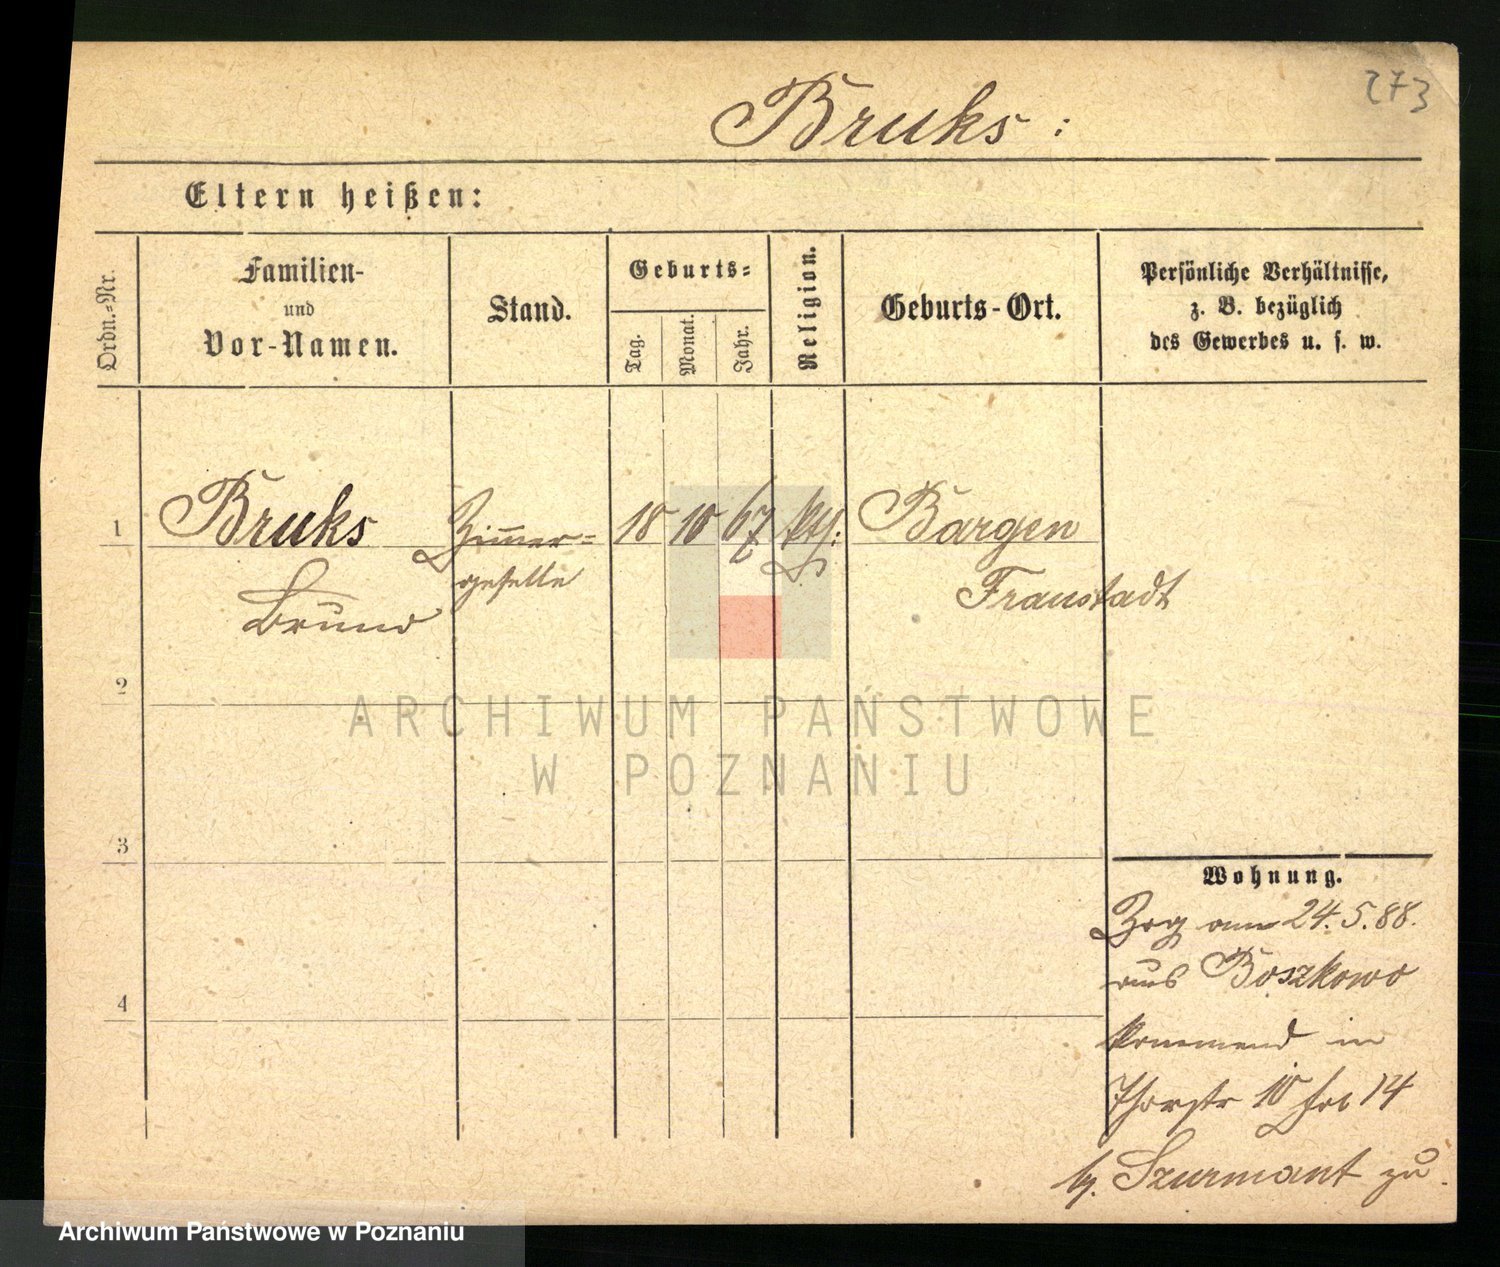 273
Bruks :
Eltern heißen:
Ordn.-Nr.
Familien-
und
Vor-Namen.
Stand.
Geburts-
Tag.
Monat.
Jahr.
Religion.
Geburts-Ort.
Persönliche Verhältnisse,
z. B. bezüglich
des Gewerbes u. s. w.
1
Bruks
Zimmer-
18
10
67
kth.
Bargen
geselle
Fraustadt
Bruno
2
ARCHIWUM PAŃSTWOWE
W POZNANIU
3
Wohnung.
Zog am 24.5.88.
aus Boszkowo
4
kommend in
Thorstr 10 14
b. Szurmant zu.
Archiwum Państwowe w Poznaniu